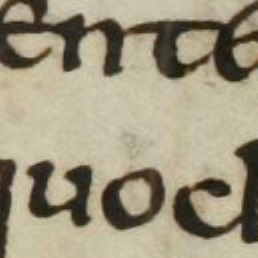 ente
quod